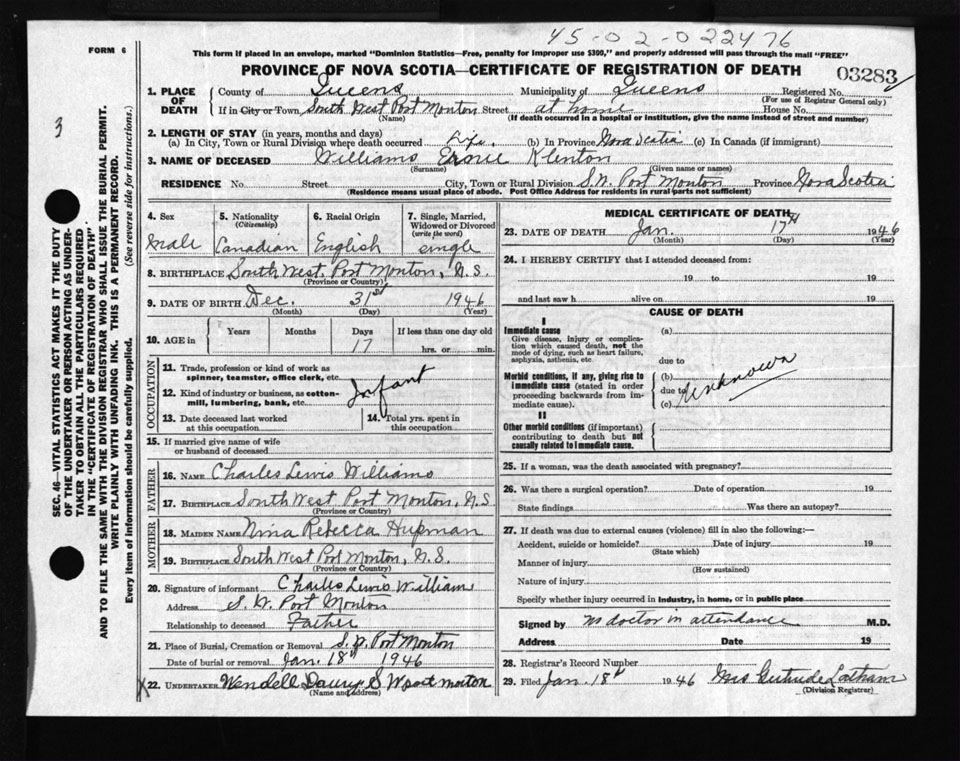 45-02-022476
FORM 6
This form if placed in an envelope, marked "Dominion Statistics—Free, penalty for improper use $300," and properly addressed will pass through the mail "FREE"
PROVINCE OF NOVA SCOTIA—CERTIFICATE OF REGISTRATION OF DEATH
03283
3
SEC. 46—VITAL STATISTICS ACT MAKES IT THE DUTY
OF THE UNDERTAKER OR PERSON ACTING AS UNDER-
TAKER TO OBTAIN ALL THE PARTICULARS REQUIRED
IN THE "CERTIFICATE OF REGISTRATION OF DEATH"
AND TO FILE THE SAME WITH THE DIVISION REGISTRAR WHO SHALL ISSUE THE BURIAL PERMIT.
WRITE PLAINLY WITH UNFADING INK. THIS IS A PERMANENT RECORD.
Every item of information should be carefully supplied. (See reverse side for instructions.)
1. PLACE OF DEATH
County of Queens Municipality of Queens Registered No.
(For use of Registrar General only)
If in City or Town South West Port Monton Street at home House No.
(Name) (If death occurred in a hospital or institution, give the name instead of street and number)
2. LENGTH OF STAY (in years, months and days)
(a) In City, Town or Rural Division where death occurred Life. (b) In Province Nova Scotia (c) In Canada (if immigrant)
3. NAME OF DECEASED Williams Ernie Klenton
(Surname) (Given name or names)
RESIDENCE No. Street City, Town or Rural Division S.W. Port Monton Province Nova Scotia
(Residence means usual place of abode. Post Office Address for residents in rural parts not sufficient)
4. Sex male
5. Nationality (Citizenship) Canadian
6. Racial Origin English
7. Single, Married, Widowed or Divorced (write the word) single
8. BIRTHPLACE South West, Port Monton, N.S.
(Province or Country)
9. DATE OF BIRTH Dec. 31st 1946
(Month) (Day) (Year)
10. AGE in Years Months Days 17 If less than one day old hrs. or min.
OCCUPATION
11. Trade, profession or kind of work as spinner, teamster, office clerk, etc.
Infant
12. Kind of industry or business, as cotton-mill, lumbering, bank, etc.
13. Date deceased last worked at this occupation
14. Total yrs. spent in this occupation
15. If married give name of wife or husband of deceased
FATHER
16. NAME Charles Lewis Williams
17. BIRTHPLACE South West Port Monton, N.S
(Province or Country)
MOTHER
18. MAIDEN NAME Nina Rebecca Hupman
19. BIRTHPLACE South West Port Monton, N.S.
(Province or Country)
20. Signature of informant Charles Lewis William
Address S.W. Port Monton
Relationship to deceased Father
21. Place of Burial, Cremation or Removal S.W. Port Monton
Date of burial or removal Jan. 18th 1946
X 22. UNDERTAKER Wendell S W port monton
(Name and address)
MEDICAL CERTIFICATE OF DEATH
23. DATE OF DEATH Jan. 17th 1946
(Month) (Day) (Year)
24. I HEREBY CERTIFY that I attended deceased from:
19 to 19
and last saw h alive on 19
CAUSE OF DEATH
I
Immediate cause
Give disease, injury or complication which caused death, not the mode of dying, such as heart failure, asphyxia, asthenia, etc.
(a)
due to
Morbid conditions, if any, giving rise to immediate cause (stated in order proceeding backwards from immediate cause).
(b)
due to
(c)
Unknown
II
Other morbid conditions (if important) contributing to death but not causally related to immediate cause.
25. If a woman, was the death associated with pregnancy?
26. Was there a surgical operation? Date of operation 19
State findings Was there an autopsy?
27. If death was due to external causes (violence) fill in also the following:—
Accident, suicide or homicide? Date of injury 19
(State which)
Manner of injury
(How sustained)
Nature of injury
Specify whether injury occurred in industry, in home, or in public place
Signed by no doctor in attendance M.D.
Address Date 19
28. Registrar's Record Number
29. Filed Jan. 18th 1946 Mrs Gertrude Leatham
(Division Registrar)